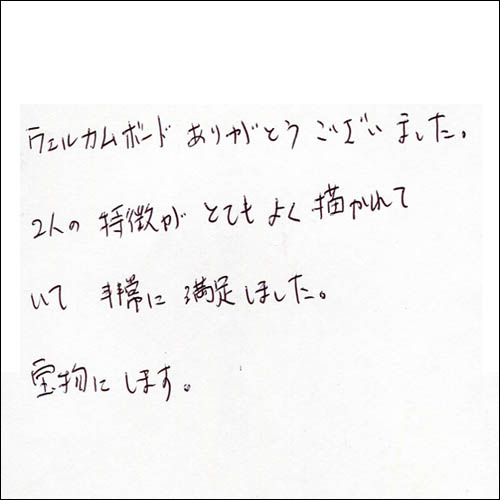 ウェルカムボードありがとうございました。
2人の特徴がとてもよく描かれて
いて 非常に満足しました。
宝物にします。